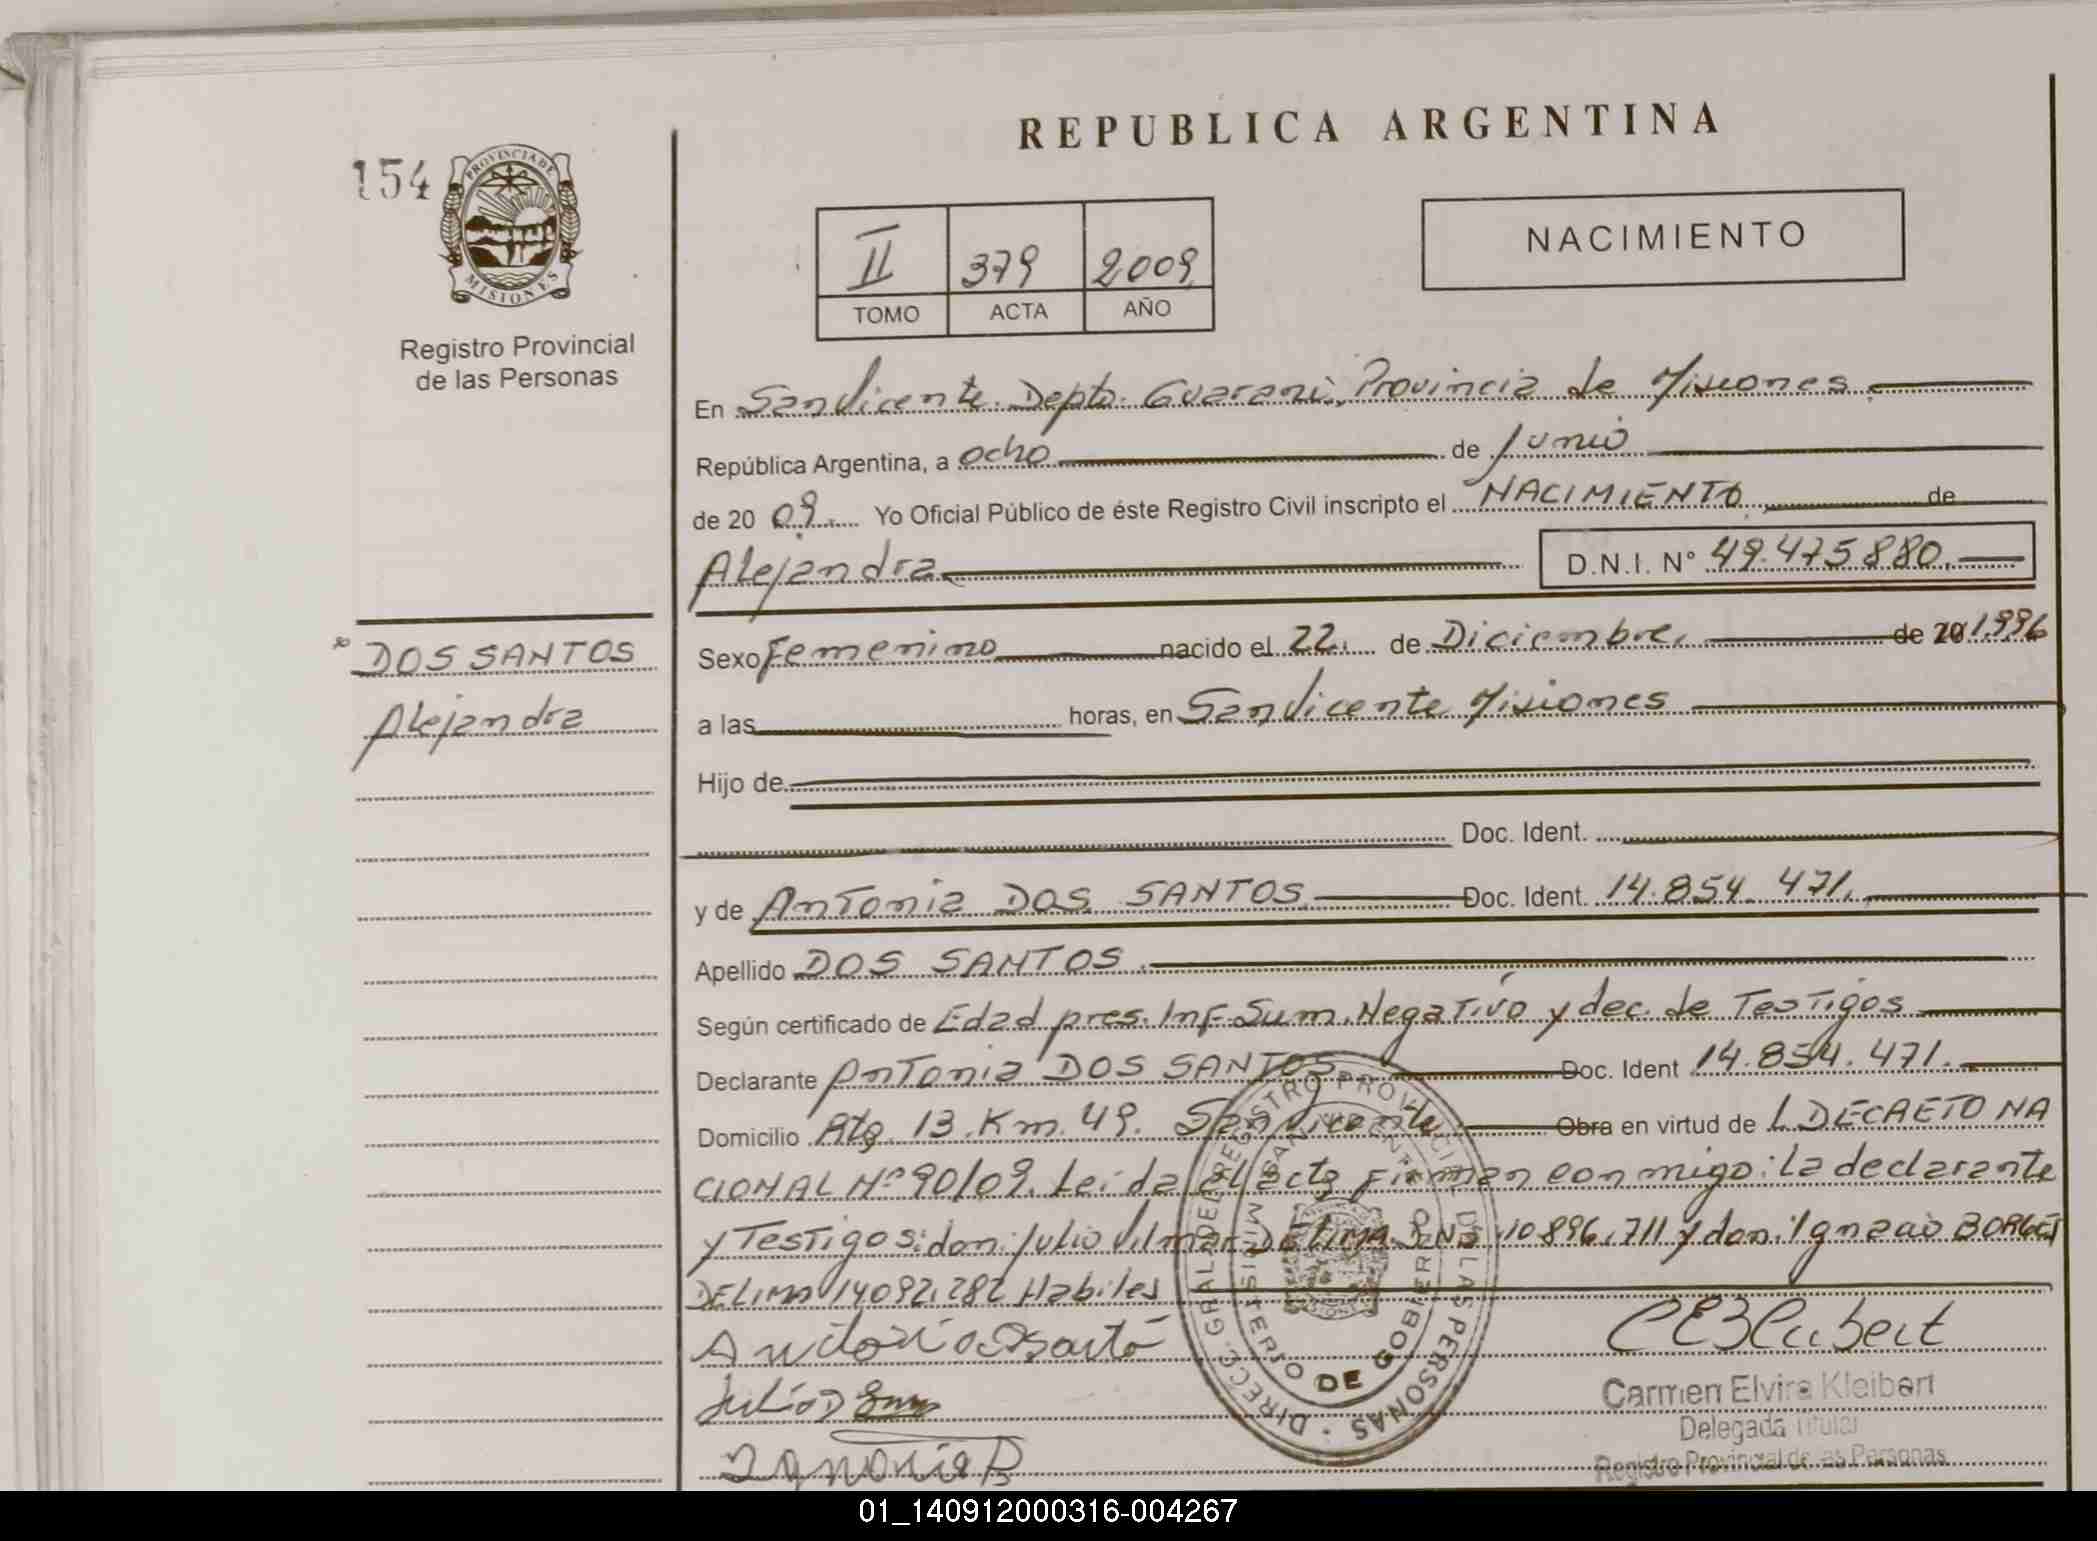 REPUBLICA ARGENTINA
154
PROVINCIA DE
MISIONES
Registro Provincial
de las Personas
II 379 2009
TOMO ACTA AÑO
NACIMIENTO
En San Vicente. Depto. Guarani, Provincia de Misiones
República Argentina, a ocho de Junio
de 20 09. Yo Oficial Público de éste Registro Civil inscripto el NACIMIENTO de
Alejandra D.N.I. N° 49.475.880.
DOS SANTOS
Alejandra
Sexo Femenino nacido el 22. de Diciembre. de 20 1.996
a las horas, en San Vicente Misiones
Hijo de
Doc. Ident.
y de Antonia DOS SANTOS Doc. Ident. 14.854.471.
Apellido DOS SANTOS.
Según certificado de Edad pres. Inf. Sum. Negativo y dec. de Testigos
Declarante Antonia DOS SANTOS Doc. Ident 14.854.471.
Domicilio Rta. 13. Km. 49. San Vicente Obra en virtud de L DECRETO NA
CIONAL Nº 90/09. Leída el acta Firman conmigo: la declarante
y Testigos: don: Julio Vilmar DE LIMA DNI 10896.711 y don: Ignacio BORGES
DELIMA 14092.282 Habiles
DIRECC. GRAL DE REGISTRO PROVINCIAL DE LAS PERSONAS
MINISTERIO DE GOBIERNO
SAN VICENTE
Carmen Elvira Kleibert
Delegada Titular
Registro Provincial de las Personas
01_140912000316-004267